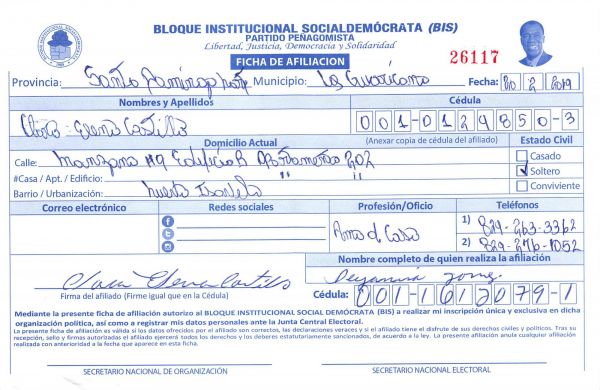 BLOQUE INSTITUCIONAL SOCIALDEMÓCRATA (BIS)
PARTIDO PEÑAGOMISTA
Libertad, Justicia, Democracia y Solidaridad
FICHA DE AFILIACION
26117
Provincia: Santo Domingo Norte Municipio: La Guaricano Fecha: 20 2 2019
Nombres y Apellidos Cédula
Elena Castillo 001-0124850-3
Domicilio Actual (Anexar copia de cédula del afiliado) Estado Civil
Calle: Manzana #9 Edificio B Apartamento 202
Casado
#Casa / Apt. / Edificio: " " "
Soltero
Barrio / Urbanización: Nueva Isabela
Conviviente
Correo electrónico Redes sociales Profesión/Oficio Teléfonos
Ama d Casa
1) 829-263-3362
2) 829-276-1052
Nombre completo de quien realiza la afiliación
Clara Elena Castillo
Firma del afiliado (Firme igual que en la Cédula)
Cédula: 001-1612079-1
Mediante la presente ficha de afiliación autorizo al BLOQUE INSTITUCIONAL SOCIAL DEMÓCRATA (BIS) a realizar mi inscripción única y exclusiva en dicha
organización política, así como a registrar mis datos personales ante la Junta Central Electoral.
La presente ficha de afiliación es válida si los datos ofrecidos por el afiliado son correctos, las declaraciones veraces y si el afiliado tiene el disfrute de sus derechos civiles y políticos. Tras su
recepción, sello y firmas autorizadas el afiliado ejercerá todos los derechos y los deberes estatutariamente sancionados, de acuerdo a la ley. La presente afiliación anula cualquier afiliación
realizada con anterioridad a la fecha que aparece en esta ficha.
SECRETARIO NACIONAL DE ORGANIZACIÓN SECRETARIO NACIONAL ELECTORAL